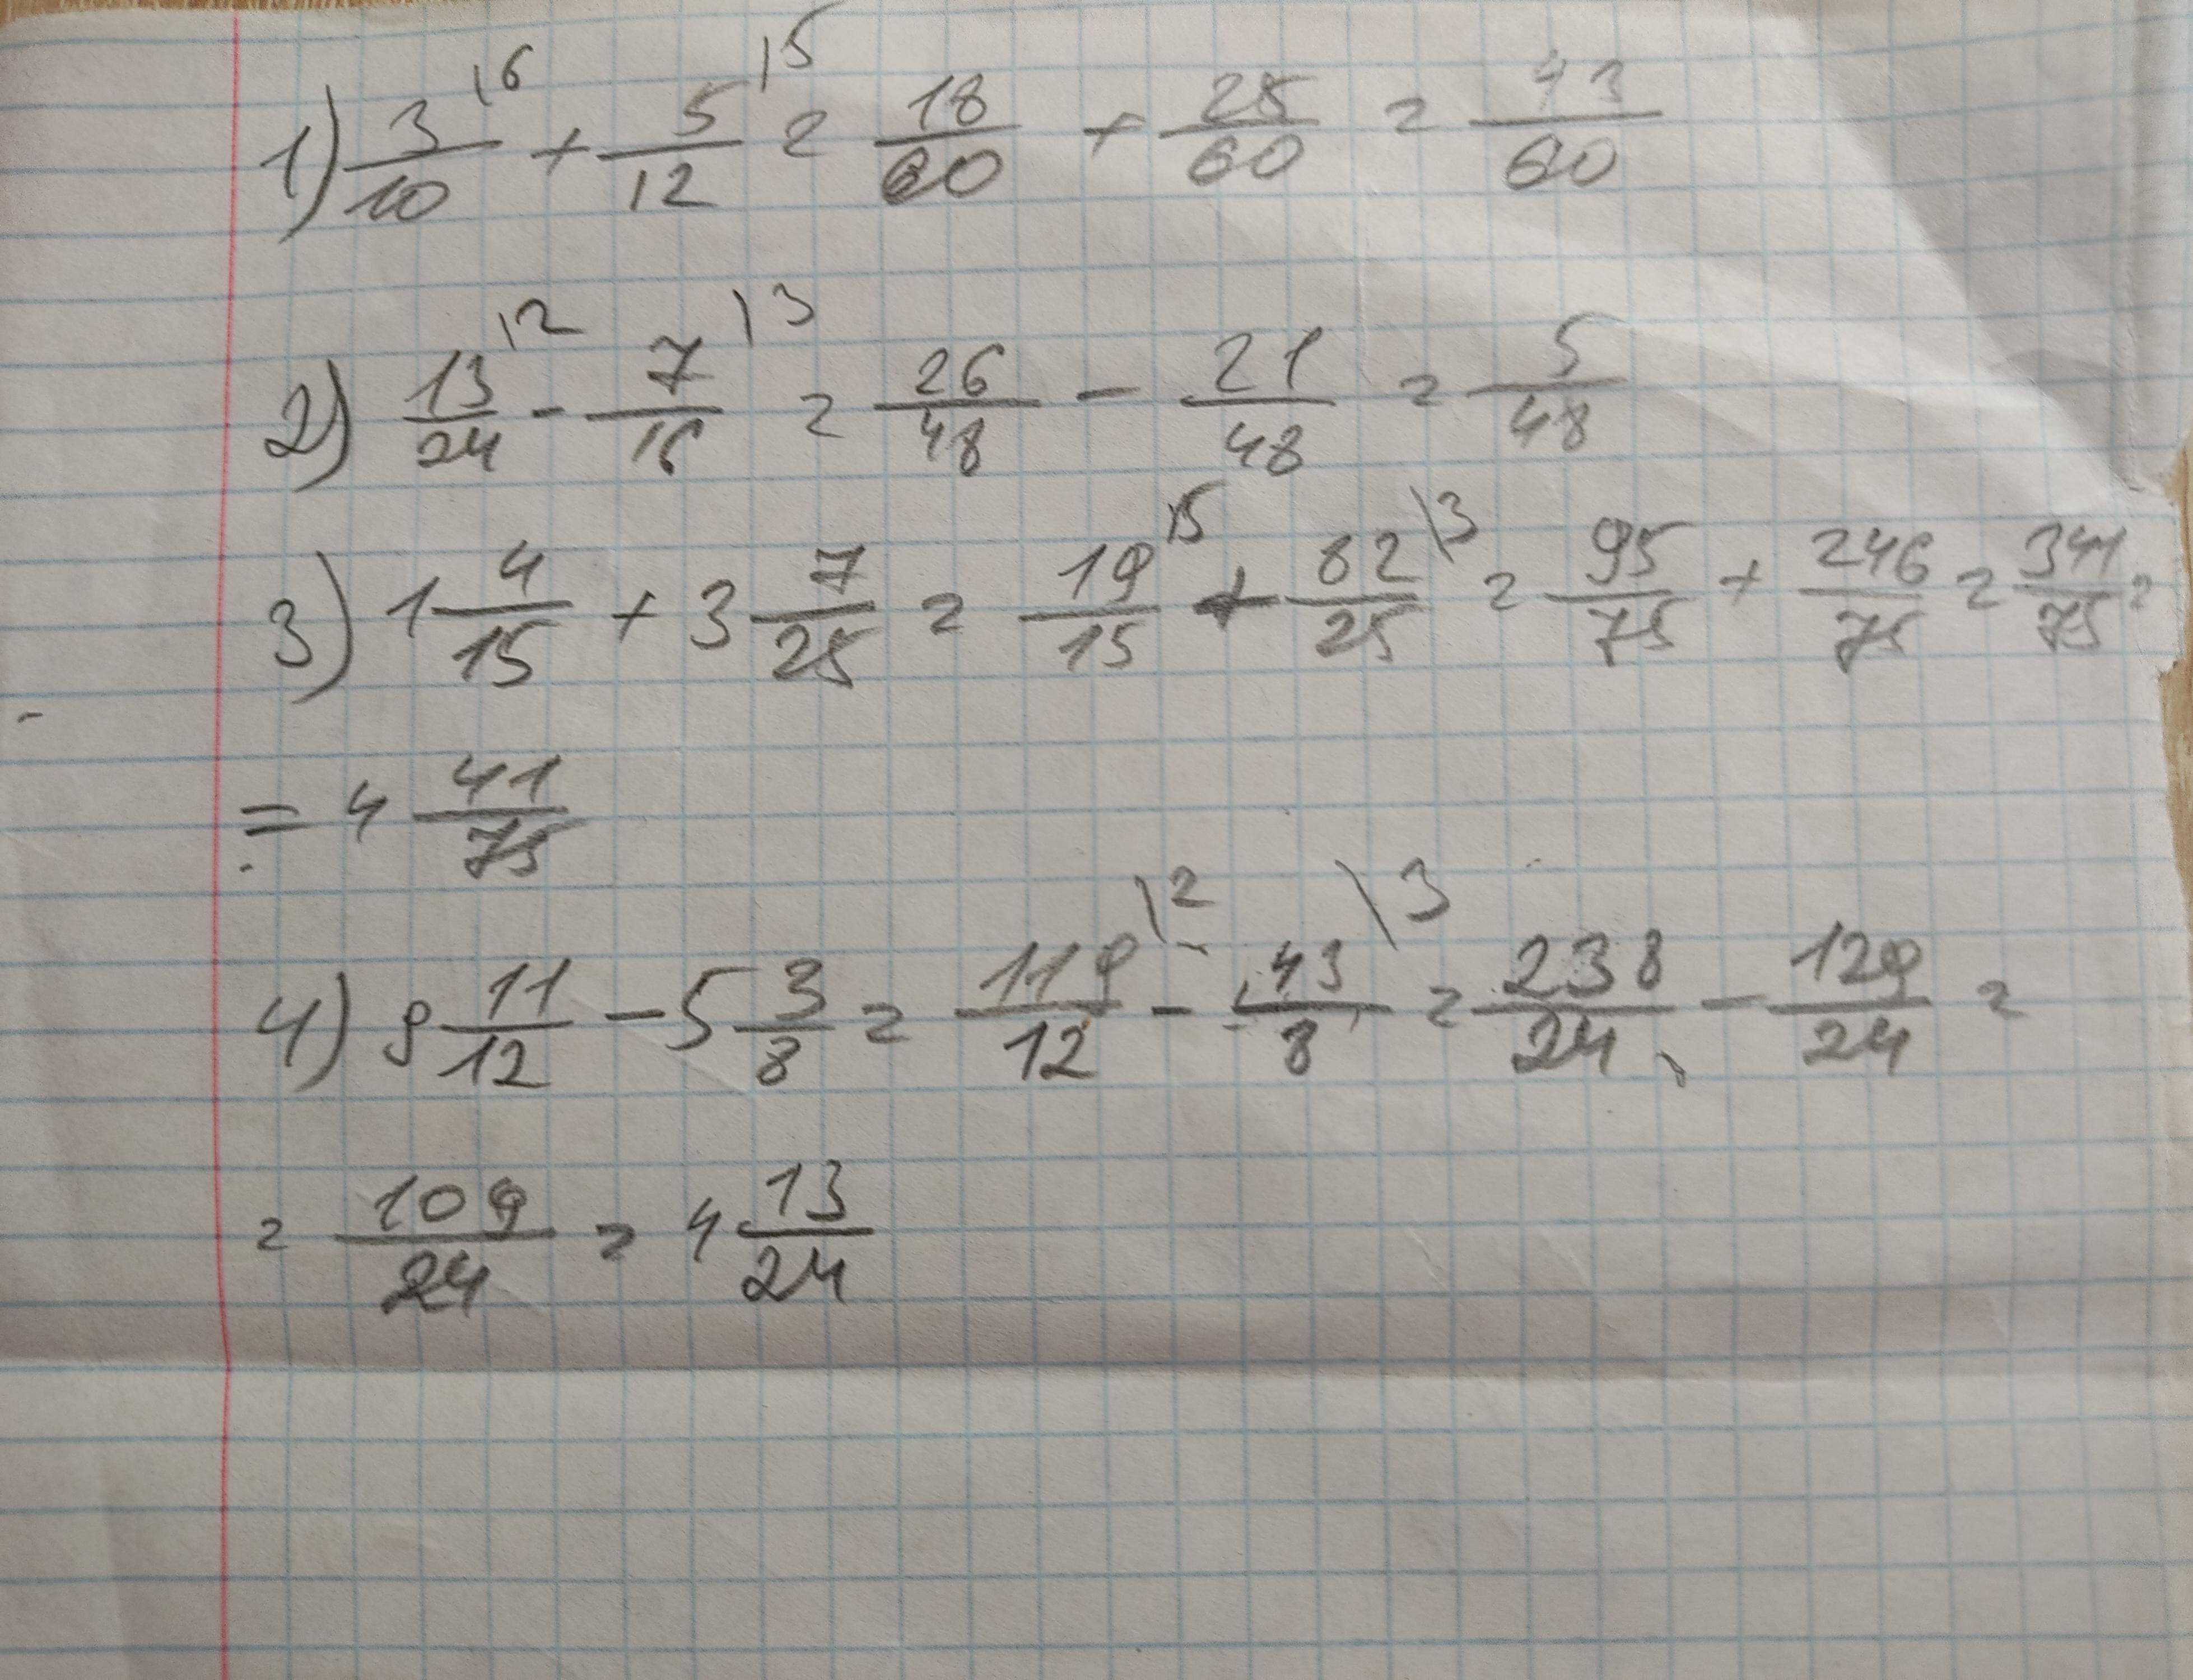 1) 3/10 \6 + 5/12 \5 = 18/60 + 25/60 = 43/60
2) 13/24 \2 - 7/16 \3 = 26/48 - 21/48 = 5/48
3) 1 4/15 + 3 7/25 = 19/15 \5 + 82/25 \3 = 95/75 + 246/75 = 341/75 =
= 4 41/75
4) 9 11/12 - 5 3/8 = 119/12 \2 - 43/8 \3 = 238/24 - 129/24 =
= 109/24 = 4 13/24